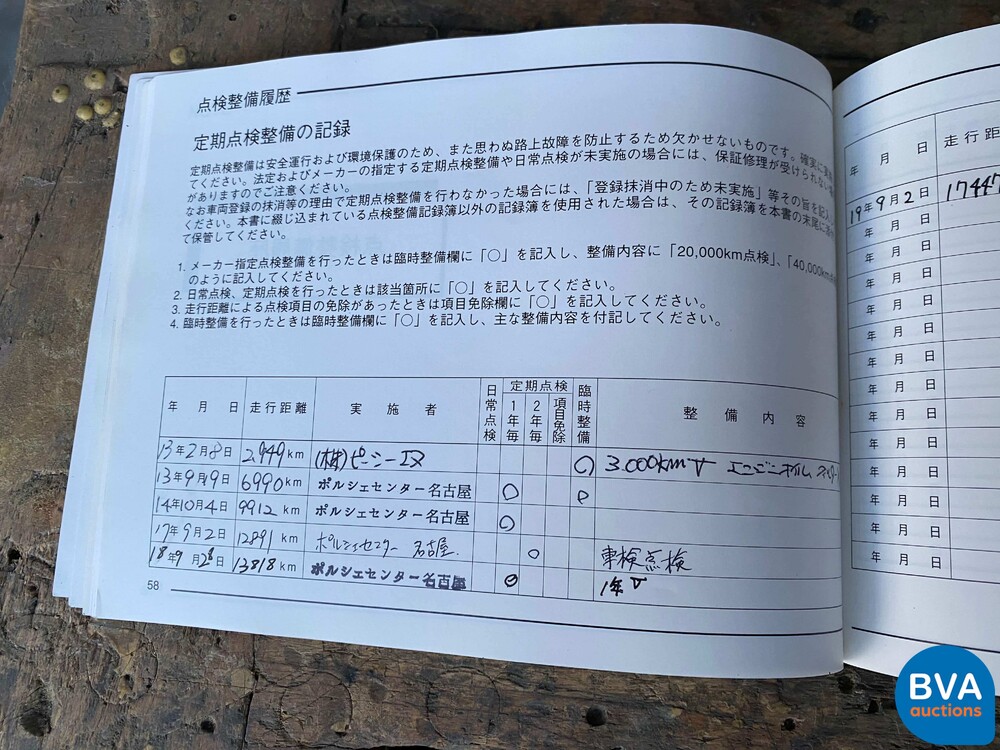 点検整備履歴
定期点検整備の記録
定期点検整備は安全運行および環境保護のため、また思わぬ路上故障を防止するため欠かせないものです。確実に実施
てください。法定およびメーカーの指定する定期点検整備や日常点検が未実施の場合には、保証修理が受けられない場
がありますのでご注意ください。
なお車両登録の抹消等の理由で定期点検整備を行わなかった場合には、「登録抹消中のため未実施」等その旨を記入
ください。本書に綴じ込まれている点検整備記録簿以外の記録簿を使用された場合は、その記録簿を本書の末尾に
て保管してください。
1. メーカー指定点検整備を行ったときは臨時整備欄に「○」を記入し、整備内容に「20,000km点検」、「40,000km
のように記入してください。
2. 日常点検、定期点検を行ったときは該当箇所に「○」を記入してください。
3. 走行距離による点検項目の免除があったときは項目免除欄に「○」を記入してください。
4. 臨時整備を行ったときは臨時整備欄に「○」を記入し、主な整備内容を付記してください。
年 月 日 走行距離 実施者 日常点検 定期点検 1年毎 2年毎 項目免除 臨時整備 整備内容
13年2月8日 2,949km (株) ○ 3.000km
13年9月9日 6990km ポルシェセンター名古屋 ○ ○
14年10月4日 9912km ポルシェセンター名古屋 ○
17年9月2日 12891km ポルシェセンター 名古屋. ○ 車検点検
18年9月2日 13818km ポルシェセンター名古屋 ○ 1年
58
年 月 日 走行距
19年9月2日 17447
年 月 日
年 月 日
年 月 日
年 月 日
年 月 日
年 月 日
年 月 日
年 月 日
年 月 日
年 月 日
年 月 日
年 月 日
BVA
auctions